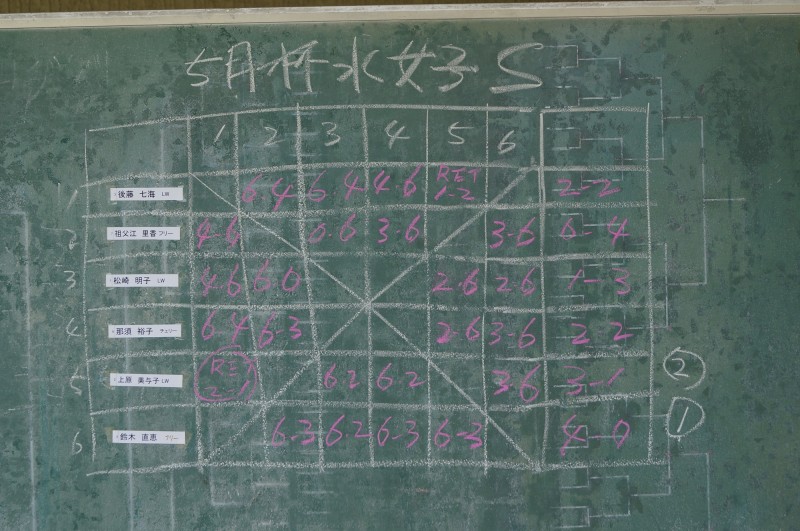 5月杯水女子S
1 2 3 4 5 6
1 後藤 七海 LW 6-4 6-4 4-6 RET 1-2 2-2
2 祖父江 里香 フリー 4-6 0-6 3-6 3-6 0-4
3 松崎 明子 LW 4-6 6-0 2-6 2-6 1-3
4 那須 裕子 チェリー 6-4 6-3 2-6 3-6 2-2
5 上原 真与子 LW RET 2-1 6-2 6-2 3-6 3-1 ②
6 鈴木 直恵 フリー 6-3 6-2 6-3 6-3 4-0 ①